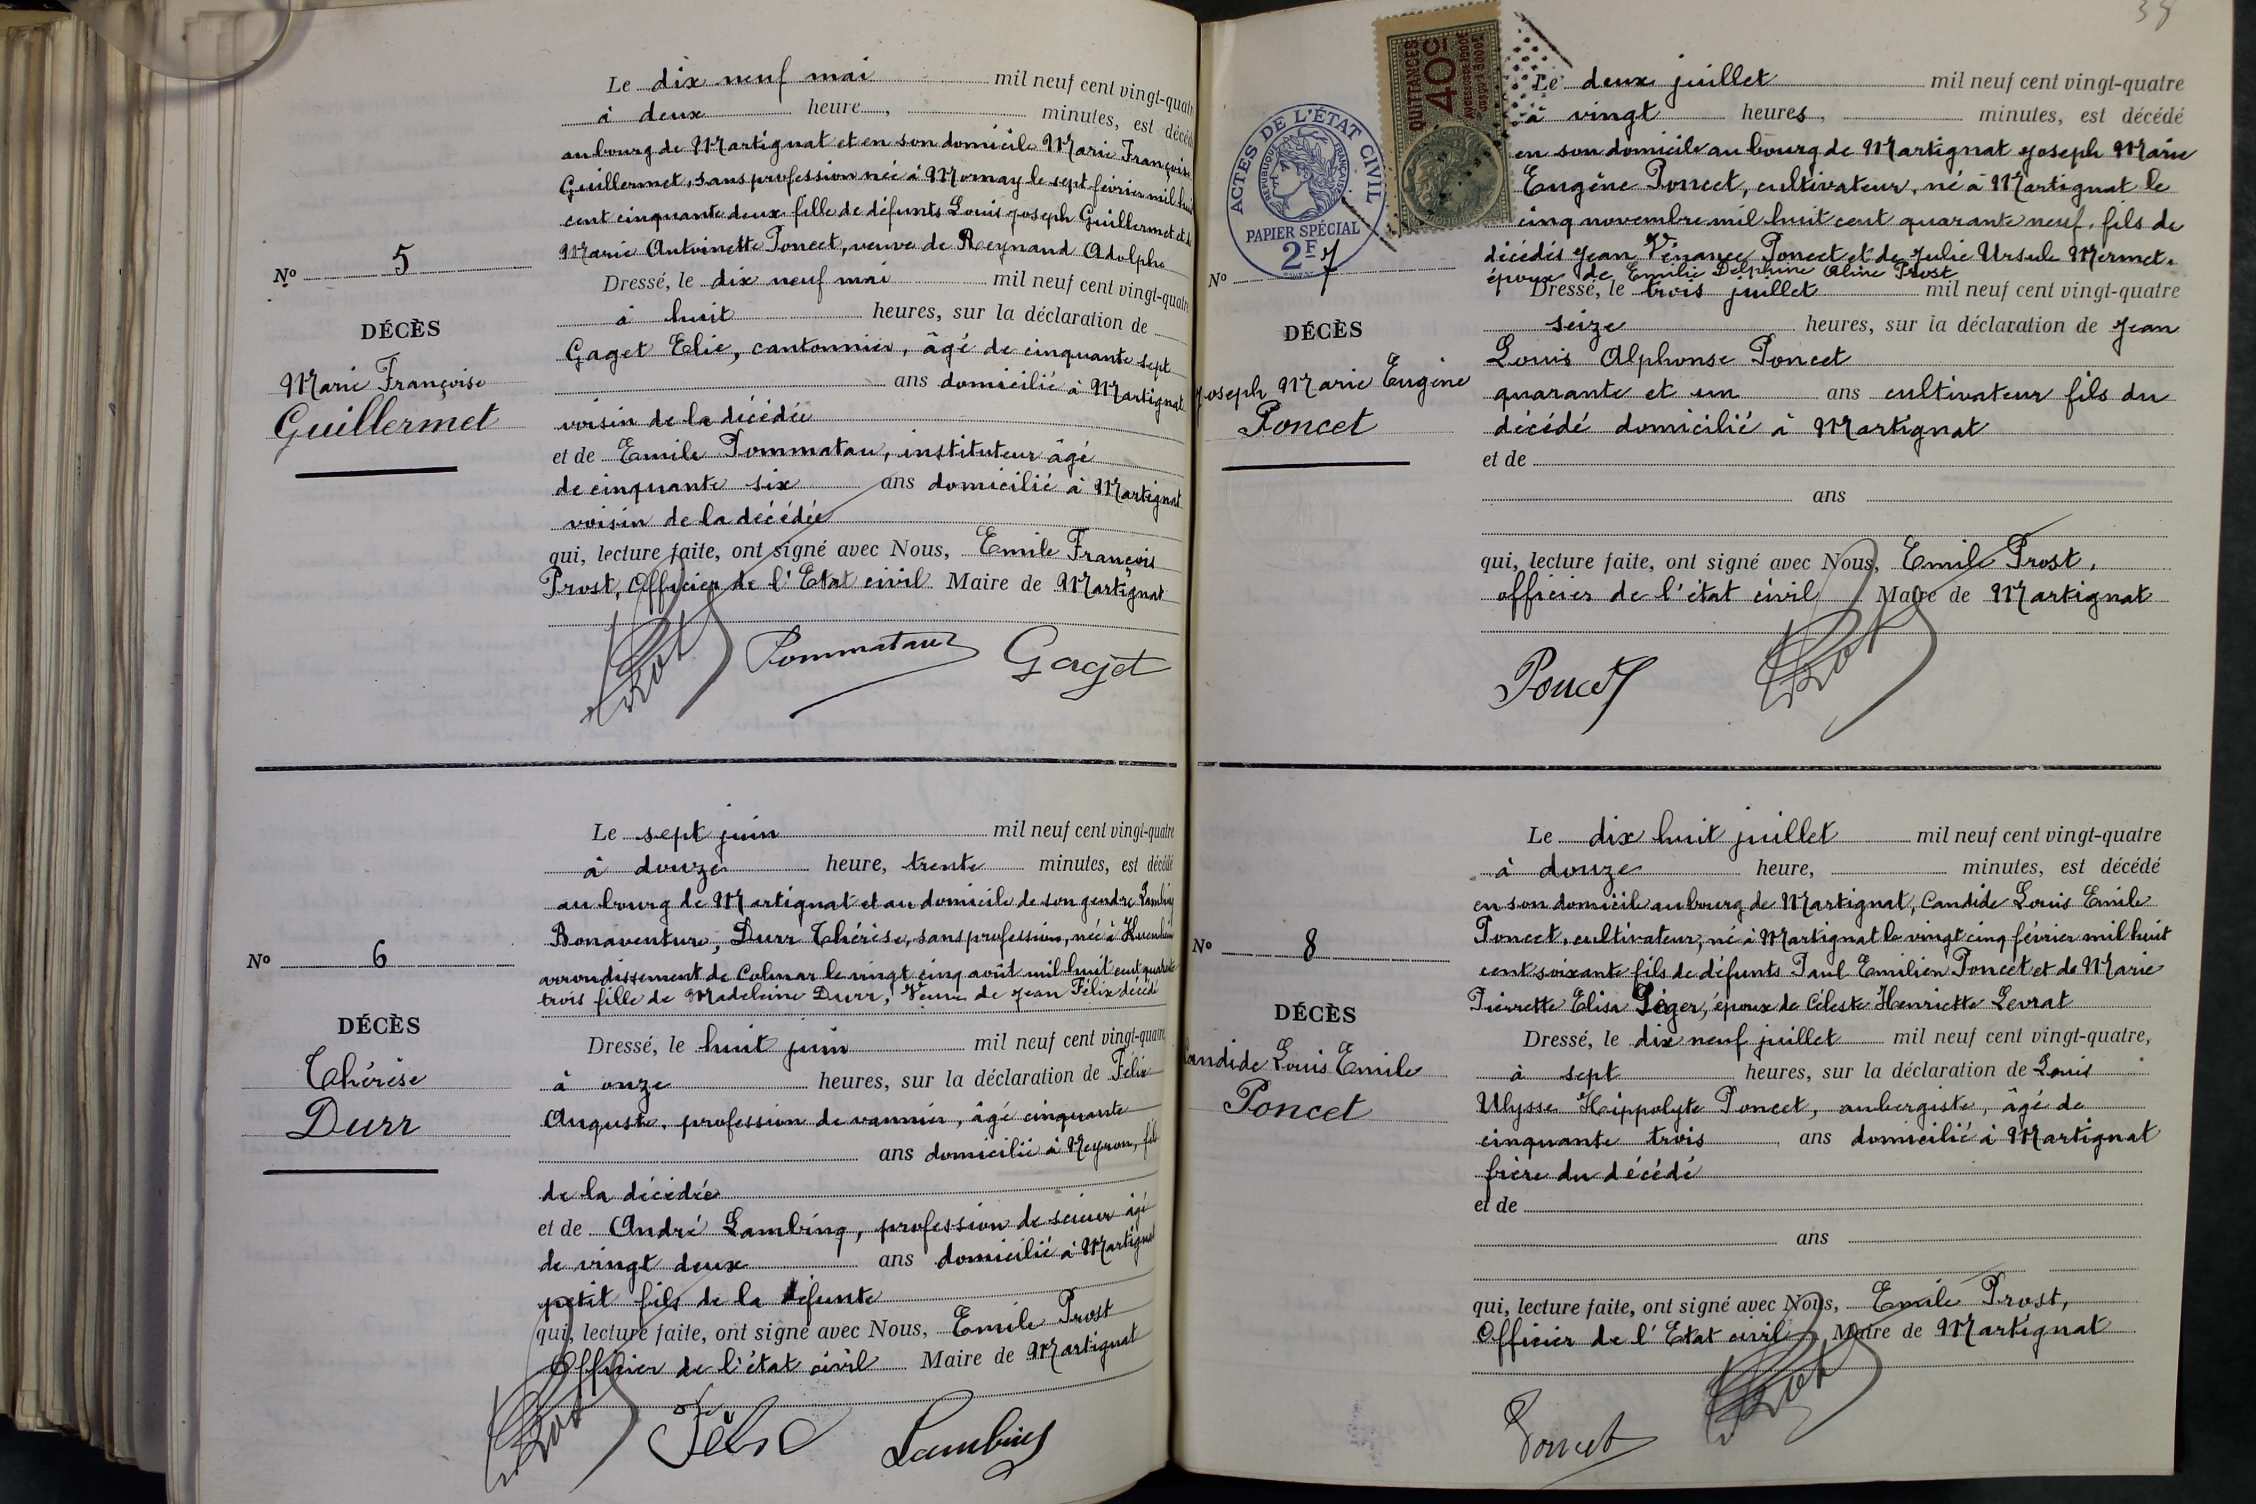 Le dix neuf mai mil neuf cent vingt-quatr
à deux heure , minutes, est décéd
au bourg de Martignat et en son domicile Marie Françoise
Guillermet, sans profession née à Mornay le sept février mil huit
cent cinquante deux fille de défunts Louis Joseph Guillermet et de
Marie Antoinette Poncet, veuve de Reynaud Adolphe
No 5
Dressé, le dix neuf mai mil neuf cent vingt-quatre
à huit heures, sur la déclaration de
DÉCÈS
Gaget Elie, cantonnier, âgé de cinquante sept
Marie Françoise
Guillermet
ans domicilié à Martignat
voisin de la décédée
et de Emile Pommatau, instituteur âgé
de cinquante six ans domicilié à Martignat
voisin de la décédée
qui, lecture faite, ont signé avec Nous, Emile François
Prost, Officier de l'Etat civil Maire de Martignat
Prost Pommatau Gaget
Le sept juin mil neuf cent vingt-quatre
à douze heure, trente minutes, est décédé
au bourg de Martignat et au domicile de son gendre Lambing
Bonaventure, Durr Thérèse, sans profession, née à
No 6
arrondissement de Colmar le vingt cinq août mil huit cent quarante
trois fille de Madeleine Durr, Veuve de Jean Félix décédé
DÉCÈS
Thérèse
Durr
Dressé, le huit juin mil neuf cent vingt-quatre
à onze heures, sur la déclaration de Félix
Auguste, profession de vannier, âgé cinquante
ans domicilié à Neyron, fils
de la décédée
et de André Lambing, profession de scieur âgé
de vingt deux ans domicilié à Martignat
petit fils de la défunte
qui, lecture faite, ont signé avec Nous, Emile Prost
Officier de l'état civil Maire de Martignat
Prost Félix Lambing
38
QUITTANCES
40c
ACTES DE L'ÉTAT CIVIL
RÉPUBLIQUE FRANÇAISE
PAPIER SPÉCIAL
2F
Le deux juillet mil neuf cent vingt-quatre
à vingt heures, minutes, est décédé
en son domicile au bourg de Martignat Joseph Marie
Eugène Poncet, cultivateur, né à Martignat le
cinq novembre mil huit cent quarante neuf, fils de
décédés Jean Vénance Poncet et de Julie Ursule Mermet,
époux de Emilie Delphine Aline Prost
No 7
Dressé, le trois juillet mil neuf cent vingt-quatre
seize heures, sur la déclaration de Jean
DÉCÈS
Joseph Marie Eugène
Poncet
Louis Alphonse Poncet
quarante et un ans cultivateur fils du
décédé domicilié à Martignat
et de
ans
qui, lecture faite, ont signé avec Nous, Emile Prost,
officier de l'état civil Maire de Martignat
Poncet Prost
Le dix huit juillet mil neuf cent vingt-quatre
à douze heure, minutes, est décédé
en son domicile au bourg de Martignat, Candide Louis Emile
Poncet, cultivateur, né à Martignat le vingt cinq février mil huit
No 8
cent soixante fils de défunts Paul Emilien Poncet et de Marie
Pierrette Elisa Léger, époux de Céleste Henriette Levrat
DÉCÈS
Candide Louis Emile
Poncet
Dressé, le dix neuf juillet mil neuf cent vingt-quatre,
à sept heures, sur la déclaration de Louis
Ulysse Hippolyte Poncet, aubergiste, âgé de
cinquante trois ans domicilié à Martignat
frère du décédé
et de
ans
qui, lecture faite, ont signé avec Nous, Emile Prost,
Officier de l'Etat civil Maire de Martignat
Poncet Prost